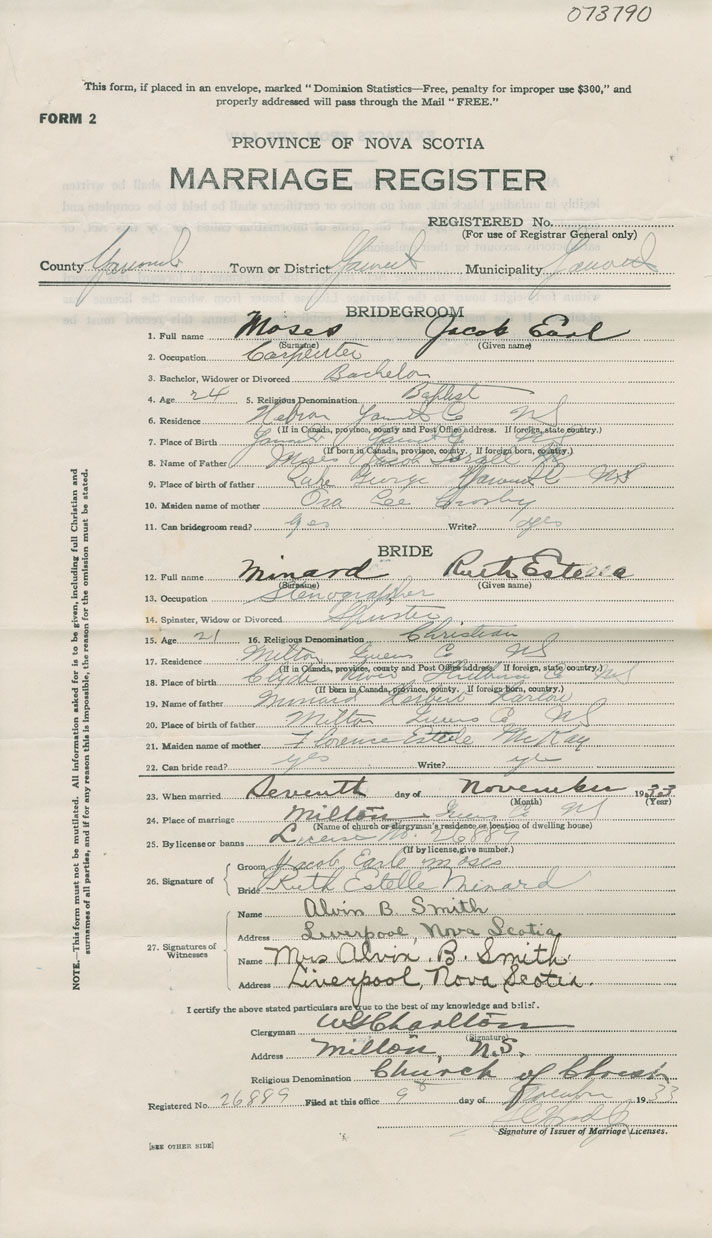 073790
This form, if placed in an envelope, marked "Dominion Statistics—Free, penalty for improper use $300," and
properly addressed will pass through the Mail "FREE."
FORM 2
PROVINCE OF NOVA SCOTIA
MARRIAGE REGISTER
REGISTERED No.
(For use of Registrar General only)
County Yarmouth Town or District Yarmouth Municipality Yarmouth
BRIDEGROOM
1. Full name Moses Jacob Earl
(Surname) (Given name)
2. Occupation Carpenter
3. Bachelor, Widower or Divorced Bachelor
4. Age 24 5. Religious Denomination Baptist
6. Residence Hebron Yarmouth Co NS
(If in Canada, province, county and Post Office address. If foreign, state country.)
7. Place of Birth Yarmouth Yarmouth Co NS
(If born in Canada, province, county. If foreign born, country.)
8. Name of Father Moses Jacob Israel
9. Place of birth of father Lake George Yarmouth NS
10. Maiden name of mother Ora Lee Crosby
11. Can bridegroom read? yes Write? yes
BRIDE
12. Full name Minard Ruth Estella
(Surname) (Given name)
13. Occupation Stenographer
14. Spinster, Widow or Divorced Spinster
15. Age 21 16. Religious Denomination Christian
17. Residence Milton Queens Co NS
(If in Canada, province, county and Post Office address. If foreign, state country.)
18. Place of birth Clyde River Shelburne Co NS
(If born in Canada, province, county. If foreign born, country.)
19. Name of father Minard Harlow
20. Place of birth of father Milton Queens Co NS
21. Maiden name of mother Florence Estelle McKay
22. Can bride read? yes Write? yes
23. When married Seventh day of November 1933
(Month) (Year)
24. Place of marriage Milton Queens Co NS
(Name of church or clergyman's residence or location of dwelling house)
25. By license or banns License No. 26889
(If by license, give number.)
26. Signature of
Groom Jacob Earle Moses
Bride Ruth Estelle Minard
27. Signatures of Witnesses
Name Alvin B. Smith
Address Liverpool, Nova Scotia
Name Mrs Alvin B. Smith
Address Liverpool, Nova Scotia.
I certify the above stated particulars are true to the best of my knowledge and belief.
Clergyman WG Charlton
(Signature)
Address Milton, N.S.
Religious Denomination Church of Christ
Registered No. 26889 Filed at this office 9 day of November 1933
Signature of Issuer of Marriage Licenses.
[SEE OTHER SIDE]
NOTE.—This form must not be mutilated. All information asked for is to be given, including full Christian and
surnames of all parties, and if for any reason this is impossible, the reason for the omission must be stated.